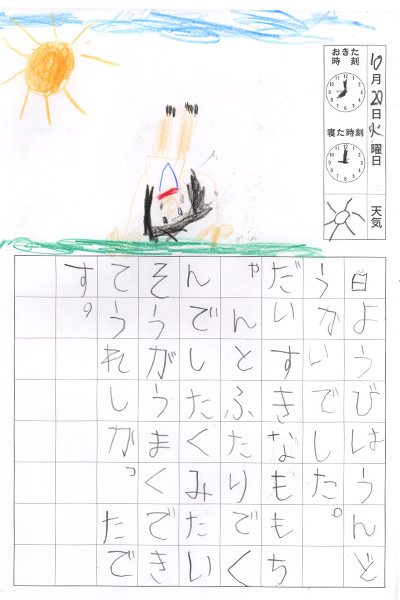 10月20日火曜日
天気
おきた
時刻
寝た時刻
日ようびはうんど
うかいでした。
だいすきなももち
ゃんとふたりでく
んでしたくみたい
そうがうまくでき
てうれしかったで
す。